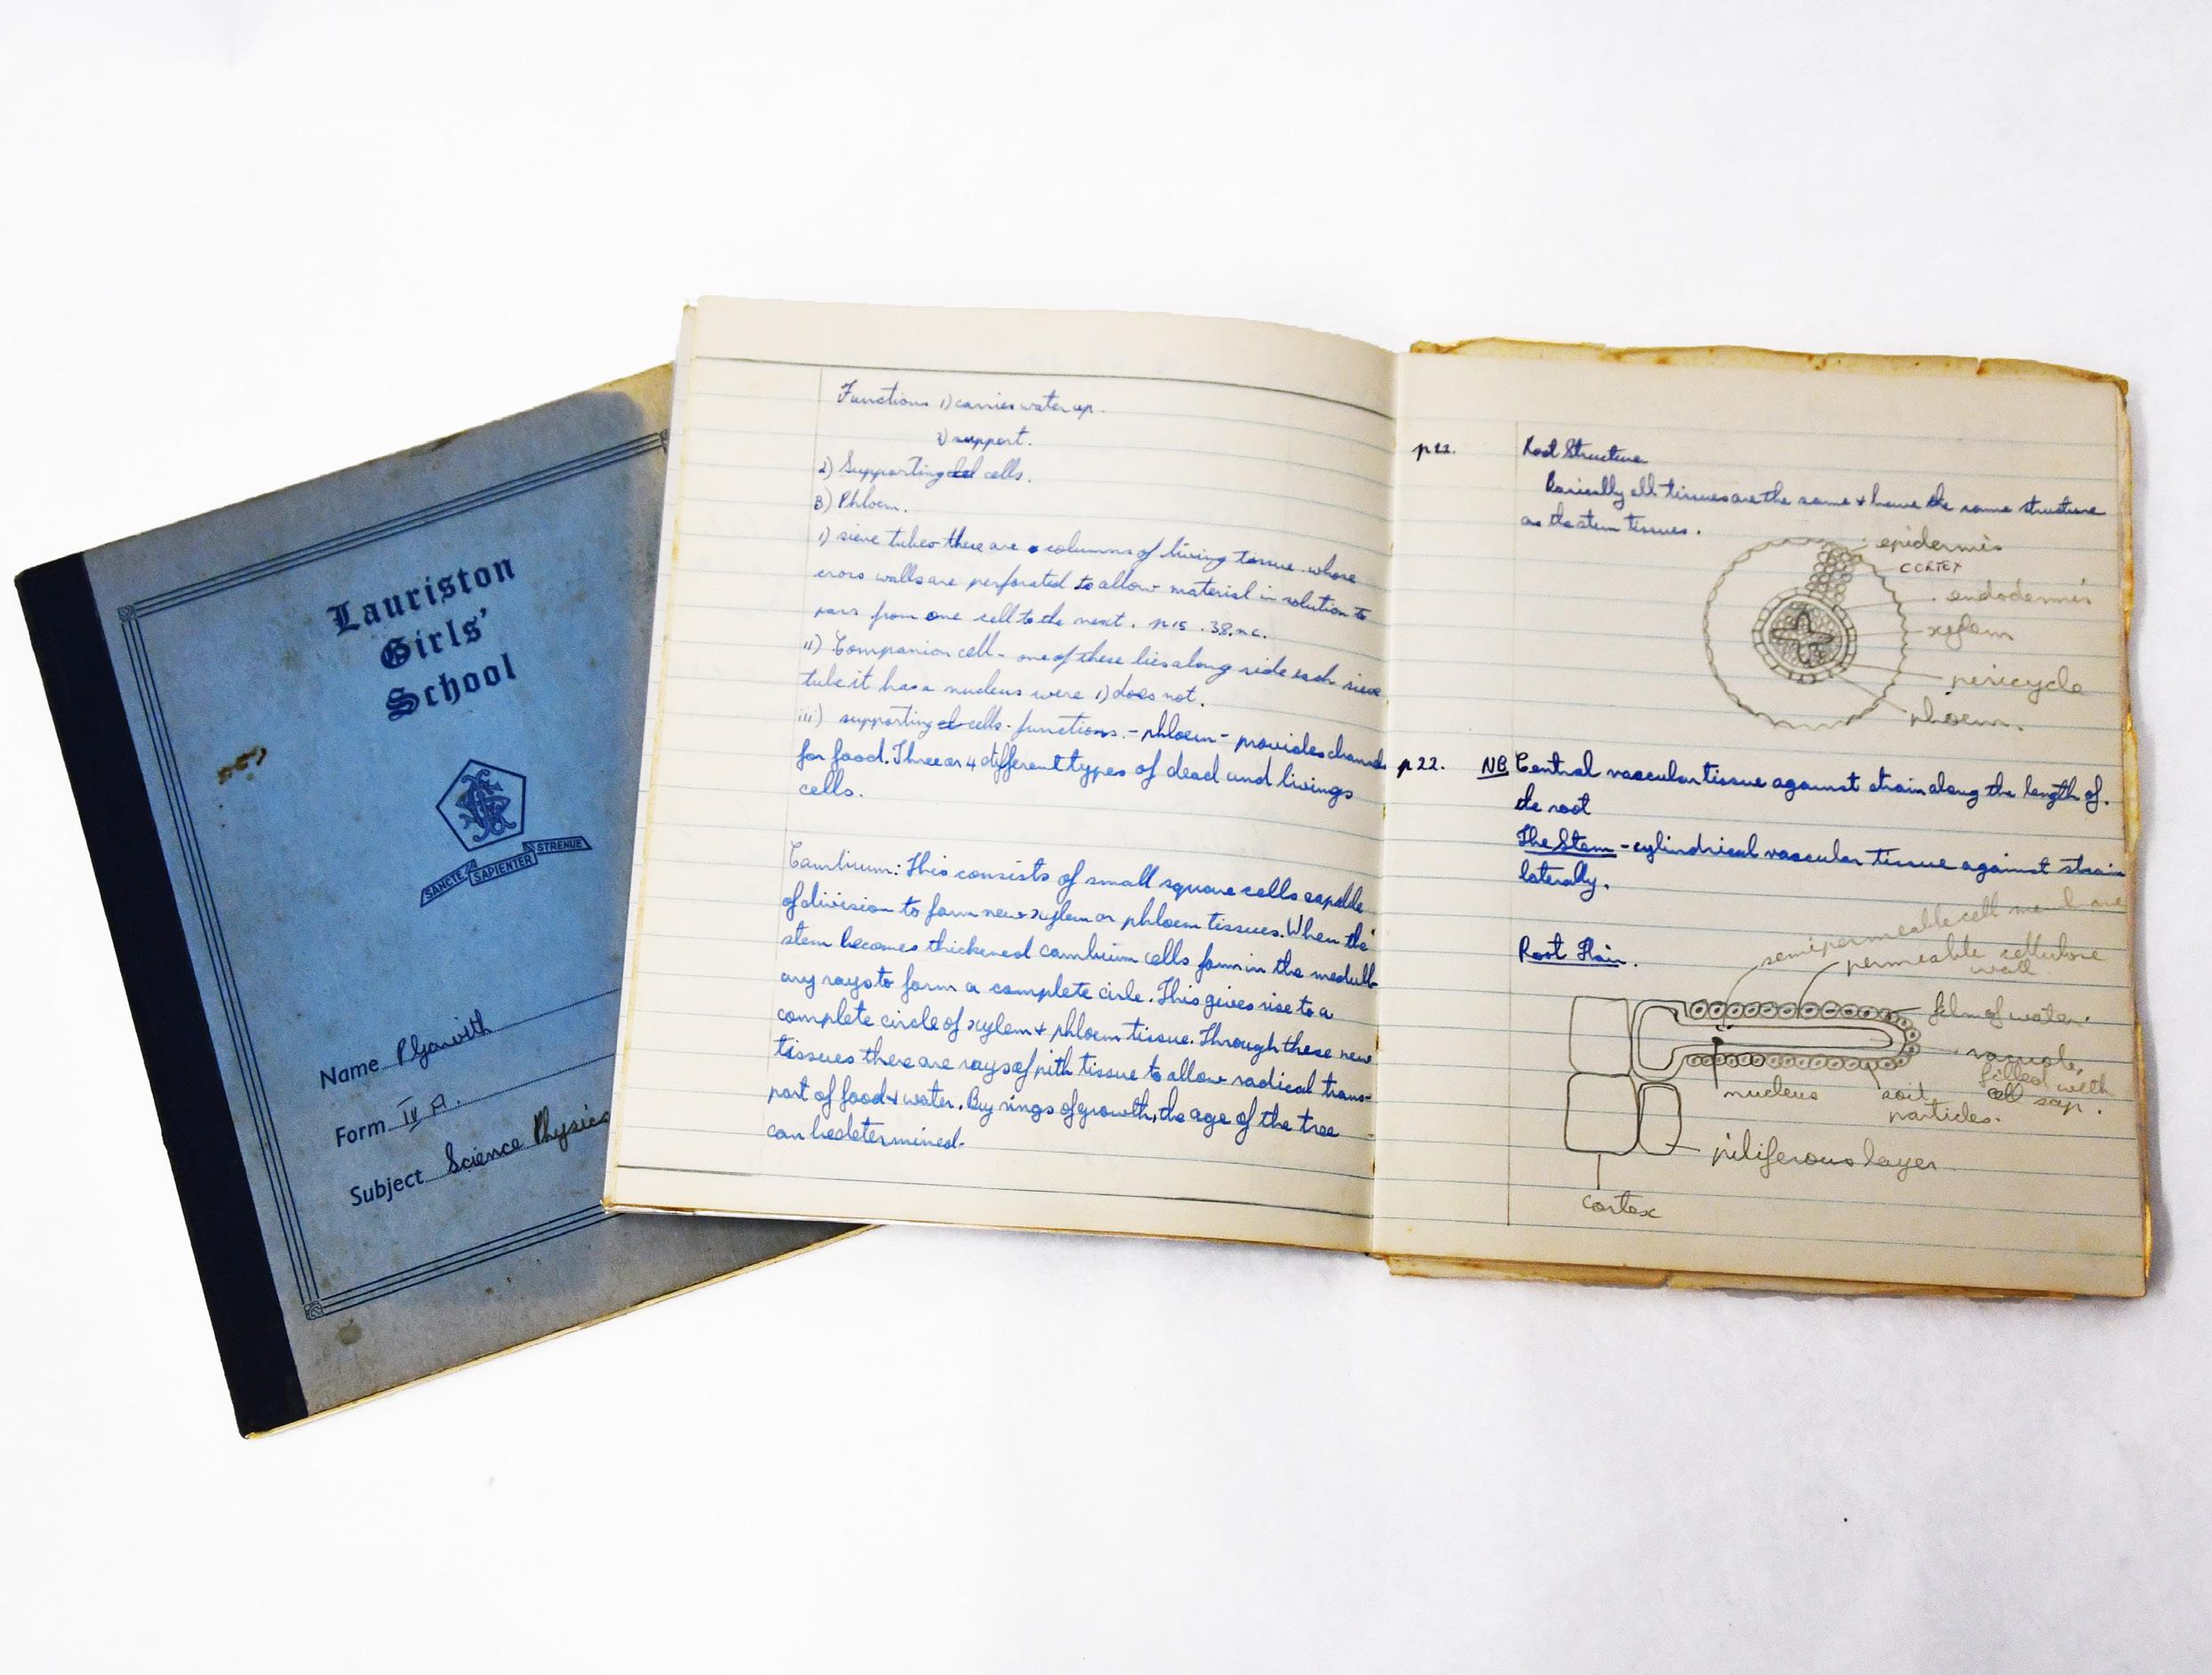 Lauriston
Girls'
School
SANCTE SAPIENTER STRENUE
Name P
Form IV A.
Subject Science Physics
Functions 1) carries water up.
2) support.
2) Supporting cells.
3) Phloem.
i) sieve tubes there are columns of living tissue whose
cross walls are perforated to allow material in solution to
pass from one cell to the next. p15. 38.
ii) Companion cell - one of these lies along side each sieve
tube it has a nucleus were 1) does not.
iii) supporting cells - functions. - phloem - provides channels
for food. Three or 4 different types of dead and livings
cells.
Cambium: This consists of small square cells capable
of division to form new xylem or phloem tissues. When the
stem becomes thickened cambium cells form in the medull-
ary rays to form a complete cirle. This gives rise to a
complete circle of xylem + phloem tissue. Through these new
tissues there are rays of pith tissue to allow radical trans-
port of food + water. By rings of growth, the age of the tree
can be determined.
p22.
Root Structure
Basically all tissues are the same + have the same structure
as the stem tissues.
epidermis
CORTEX
endodermis
xylem
pericycle
phloem.
p22. NB Central vascular tissue against strain along the length of
the root
The Stem - cylindrical vascular tissue against strain
laterally.
Root Hair.
semipermeable cell membrane
permeable cellulose
wall
film of water.
vacuole,
filled with
cell sap.
nucleus
soil
particles.
piliferous layer
cortex